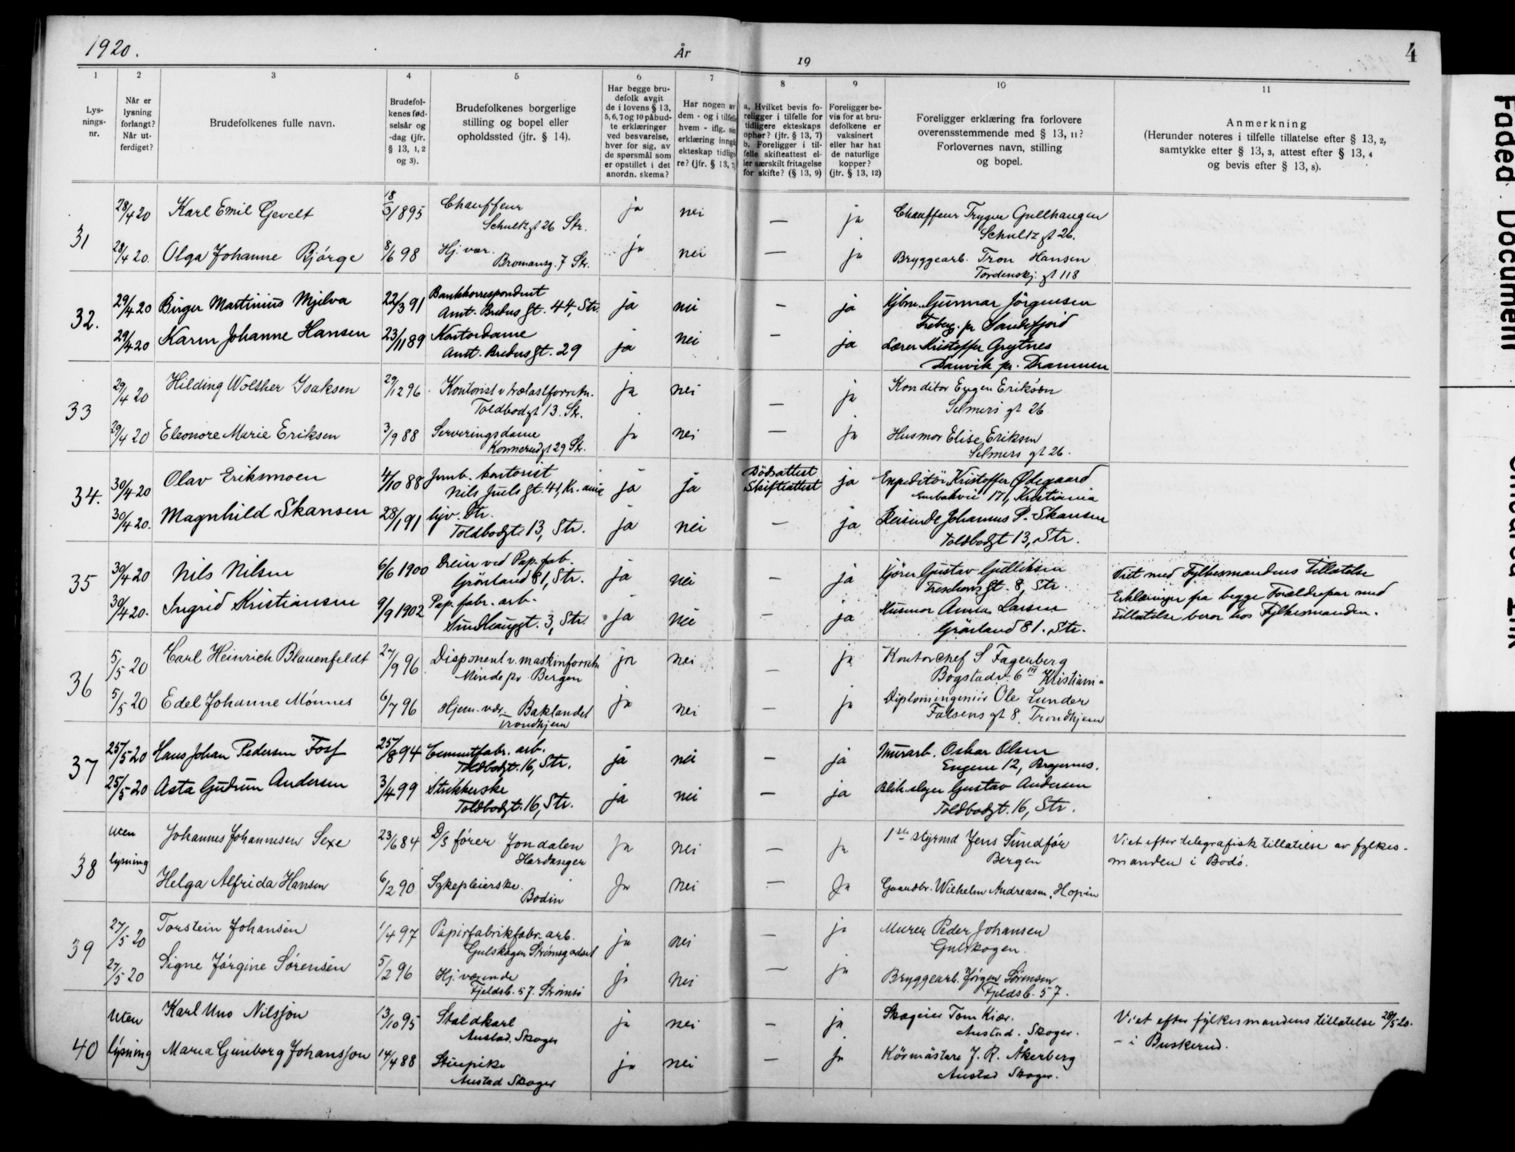 1920. År 19 4
1 2 3 4 5 6 7 8 9 10 11
Lys-
nings-
nr.
Når er
lysning
forlangt?
Når ut-
ferdiget?
Brudefolkenes fulle navn.
Brudefol-
kenes fød-
selsår og
-dag (jfr.
§ 13, 1, 2
og 3).
Brudefolkenes borgerlige
stilling og bopel eller
opholdssted (jfr. § 14).
Har begge bru-
defolk avgit
de i lovens § 13,
5, 6, 7 og 10 påbud-
te erklæringer
ved besvarelse,
hver for sig, av
de spørsmål som
er opstillet i det
anordn. skema?
Har nogen av
dem - og i tilfelle
hvem - iflg. sin
erklæring inngått
ekteskap tidlige-
re? (jfr. § 13, 7)
a. Hvilket bevis fo-
religger i tilfelle for
tidligere ekteskaps
ophør? (jfr. § 13, 7)
b. Foreligger i til-
felle skifteattest el-
ler særskilt fritagelse
for skifte? (§ 13, 9)
Foreligger be-
vis for at bru-
defolkene er
vaksinert
eller har hat
de naturlige
kopper?
(jfr. § 13, 12)
Foreligger erklæring fra forlovere
overensstemmende med § 13, 11?
Forlovernes navn, stilling
og bopel.
Anmerkning
(Herunder noteres i tilfelle tillatelse efter § 13, 2,
samtykke etter § 13, 3, attest efter § 13, 4
og bevis efter § 13, 8).
31
28/4 20 Karl Emil Gevelt 18/3 1895 Chauffeur ja nei — ja Chauffeur Trygve Gullhaugen
Schultz gt 26 Str. Schultz gt 26.
28/4 20. Olga Johanne Bjørge 8/6 98 Hj. vær. ja nei — ja Bryggearb. Tron Hansen
Bromansg. 7 Str. Tordenskj. gt 118
32.
29/4 20 Birger Martinius Mjelva 22/3 91 Bankkorrespondent ja nei — ja Kjbm. Gunnar Jörgensen
Amt. Bredus gt. 44, Str. Freberg. pr Sandefjord
29/4 20 Karin Johanne Hansen 23/11 89 Kontordame ja nei — ja Lærer Kristoffer Grytnes
Amt. Bredus gt. 29 Danvik pr. Drammen
33
29/4 20 Hilding Wolther Isaksen 29/12 96 Kontorist v trælastforretn. ja nei — ja Konditor Eugen Eriksen
Toldbodgt 13. Str. Selmers gt 26.
29/4 20 Eleonore Marie Eriksen 3/9 88 Serveringsdame ja nei — ja Husmor Elise Eriksen
Konnerudgt 29 Str. Selmers gt 26.
34.
30/4 20 Olav Eriksmoen 4/10 88 Jernb. kontorist ja ja Dødsattest ja Expeditör Kristoffer Ødegaard
Nils Juels gt. 41, Kr. ania Skifteattest 171, Kristiania
30/4 20. Magnhild Skansen 28/1 91 hjv. Str. ja nei — ja Reisende Johannes P. Skansen
Toldbodgt. 13, Str. Toldbodgt 13, Str.
35
30/4 20 Nils Nilsen 6/6 1900 Dreier ved Pap. fab. ja nei — ja Kjörer Gustav Gulliksen Viet med Fylkesmandens Tillatelse
Grønland 81, Str. Treschows gt. 8, Str. Erklæringer fra begge Forældrepar med
30/4 20. Ingrid Kristiansen 9/9 1902 Pap. fabr. arb. ja nei — ja Husmor Anna Larsen Tillatelse beror hos Fylkesmanden.
Sundhauggt. 3, Str. Grønland 81. Str.
36
5/5 20 Carl Heinrich Blauenfeldt 27/9 96 Disponent v. maskinforretn ja nei — ja Kontorchef S Fagerberg
Minde pr. Bergen Bogstadv. 6 Kristiania
5/5 20 Edel Johanne Mönnes 6/7 96 Hjem. vær. Baklandet ja nei — ja Diplomingeniör Ole Lunder
Trondhjem Falsens gt 8. Trondhjem
37
25/5 20 Hans Johan Pedersen Foss 25/8 94 Cementfabr. arb. ja nei — ja Murarb. Oskar Olsen
Toldbodgt. 16, Str. Engene 12, Bragernes.
25/5 20 Asta Gudrun Andersen 3/4 99 Strikkerske ja nei — ja Blikslager Gustav Andersen
Toldbodgt. 16, Str. Toldbodgt. 16, Str.
38
uten Johannes Johannesen Sexe 23/6 84 D/S fører Jondalen ja nei — ja 1ste styrmd Jens Sundför Viet efter telegrafisk tillatelse av fylkes-
lysning Hardanger Bergen manden i Bodö.
Helga Alfrida Hansen 6/2 90 Sykepleierske ja nei — ja Gaardbr. Wilhelm Andreasen. Hopen
Bodin
39
27/5 20 Torstein Johansen 1/4 97 Papirfabrikfabr. arb. ja nei — ja Murer Peder Johansen
Gulskogen Strømsgodset Gulskogen.
27/5 20 Signe Jörgine Sörensen 5/2 96 Hj. værende ja nei — ja Bryggearb. Jörgen Sörensen
Fjeldsb. 57. Strömsö Fjeldsb. 57.
40
uten Karl Uno Nilsson 13/10 95 Staldkarl ja nei — ja Skogeier Tom Kiær. Viet efter fylkesmandens tillatelse 28/5 20.
Austad. Skoger Austad. Skoger. — i Buskerud.
lysning Maria Gunborg Johansson 14/4 88 Stuepike ja nei — ja Körmästare J. R. Åkerberg
Austad Skoger Austad Skoger.
Faded Document
Smeared Ink